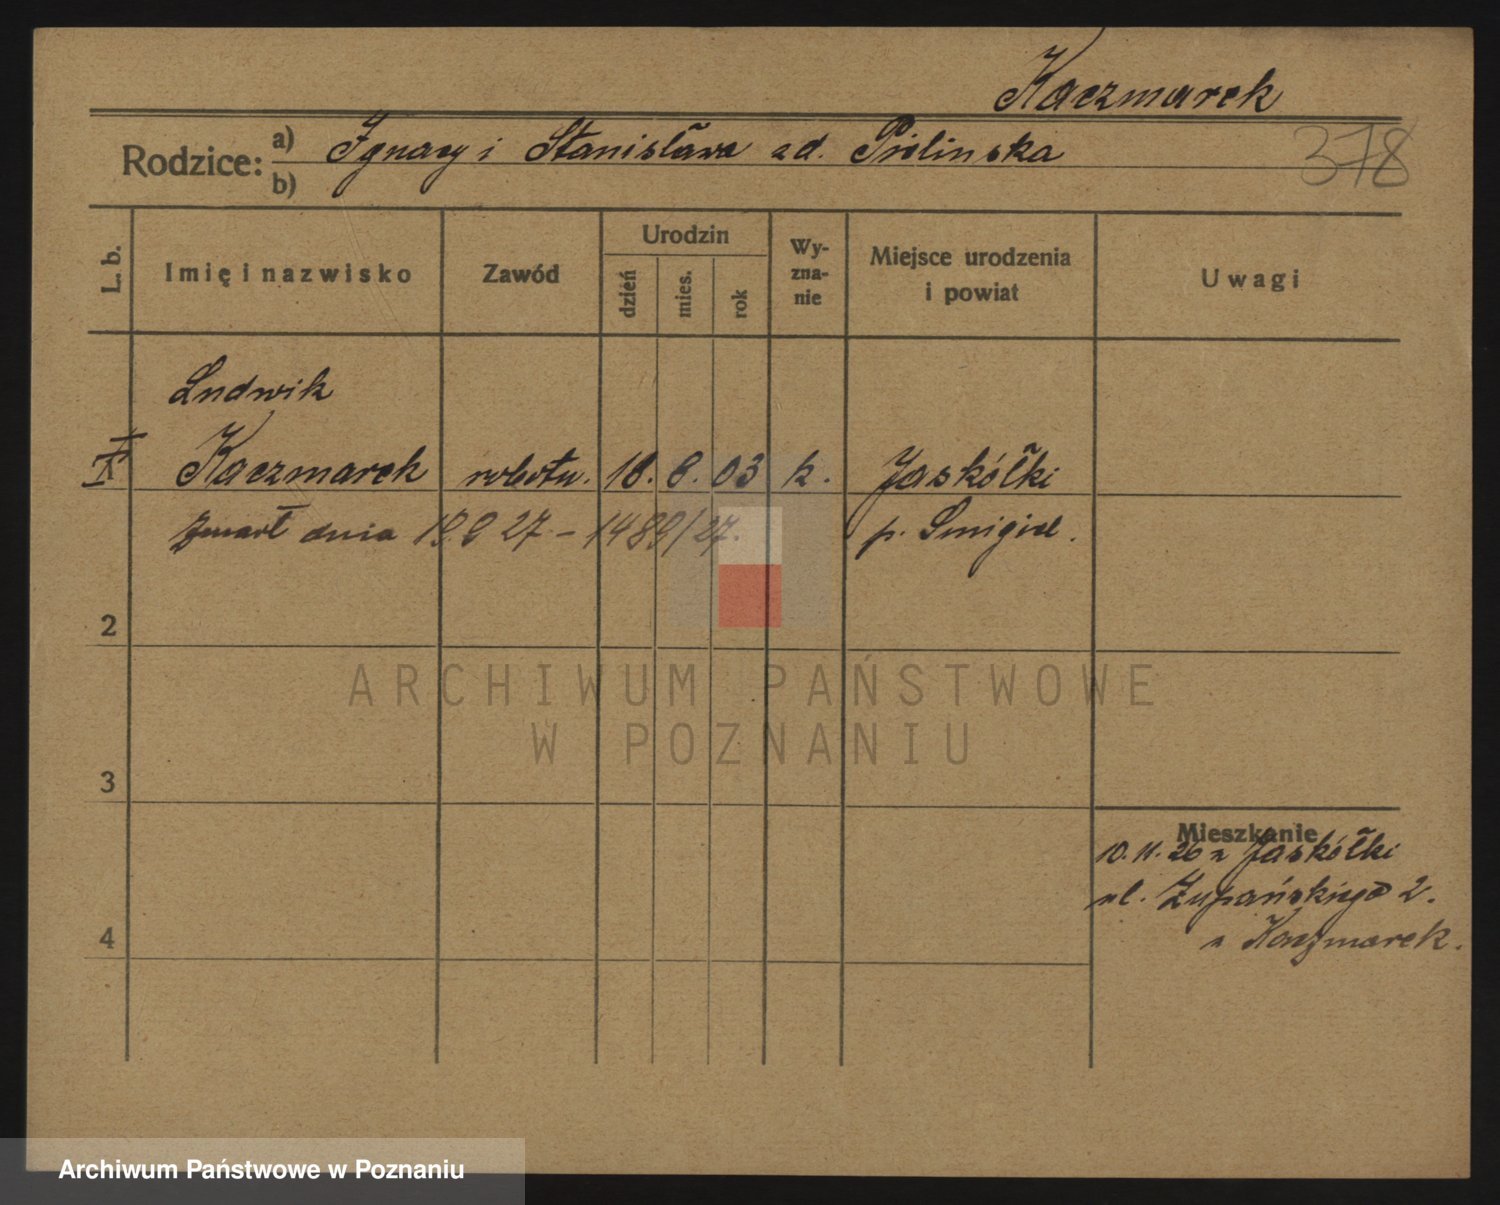 Kaczmarek
Rodzice: a) Ignacy i Stanisława zd. Pielinska
b)
378
L. b.
Imię i nazwisko
Zawód
Urodzin
dzień
mies.
rok
Wy-
zna-
nie
Miejsce urodzenia
i powiat
Uwagi
Ludwik
Kaczmarek robotn. 18. 8. 03 k. Jaskółki
zmarł dnia 19 9 27 – 1489/27. p. Smigiel.
2
3
4
Mieszkanie
10. 11. 26 z Jaskółki
ul. Żupańskiego 2.
z Kaczmarek.
ARCHIWUM PAŃSTWOWE
W POZNANIU
Archiwum Państwowe w Poznaniu